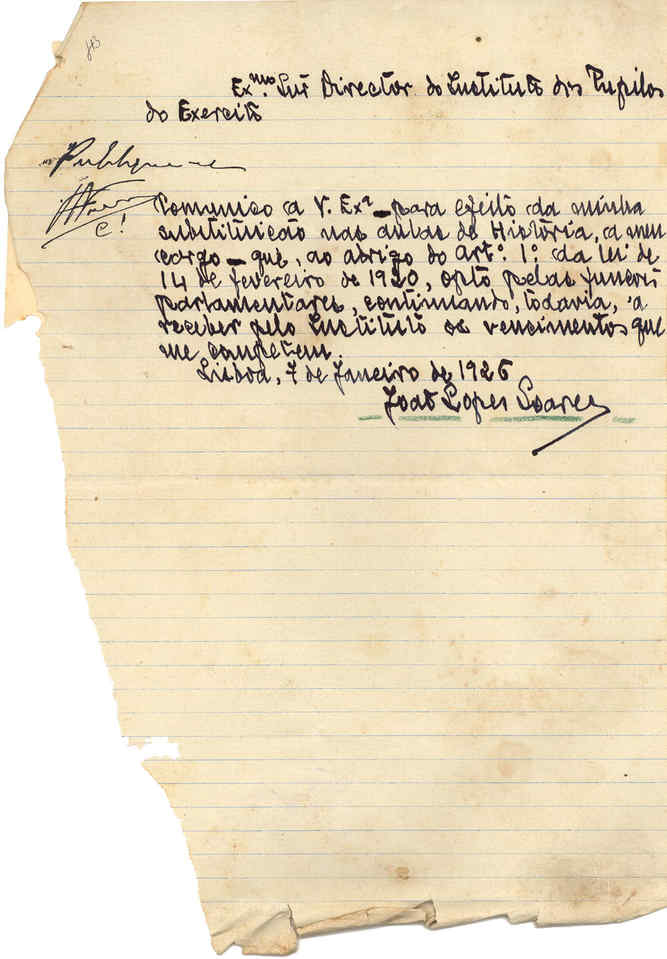 Exmo. Snr Director do Instituto dos Pupilos
do Exercito
Publique-se
Comunico a V. Exa - para efeito da minha
substituição nas aulas de História, a meu
cargo - que, ao abrigo do Artº. 1º. da lei de
14 de fevereiro de 1920, opto pelas funções
parlamentares, continuando, todavia, a
receber pelo Instituto os vencimentos que
me competem.
Lisboa, 7 de Janeiro de 1926
João Lopes Soares